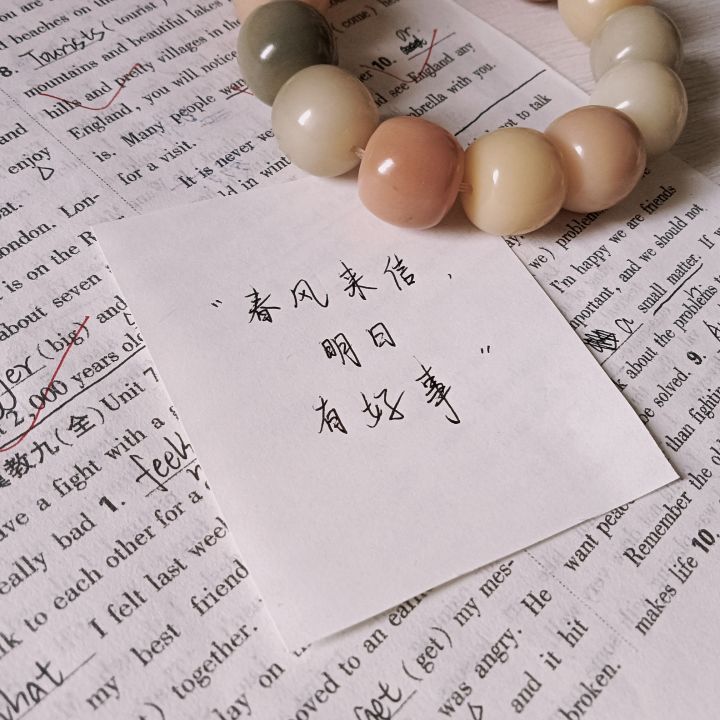 "春风来信,
明日
有好事"
8. Tourists (tourist)
mountains and beautiful lakes
hills and pretty villages in the
England, you will notice
is. Many people
for a visit.
It is never
enjoy
London. Lon-
is on the
about seven
(big) and
2,000 years old
教九(全) Unit 7
a fight with a
really bad 1.
to each other for a
I felt last week
my best friend
together.
10. or
see England any
umbrella with you.
not to talk
we) problem
I'm happy we are friends
important, and we should not
a small matter. If
about the problems
be solved. 9.
than fighting
Remember the
makes life 10.
want peace
(get) my mes-
was angry. He
and it hit
broken.